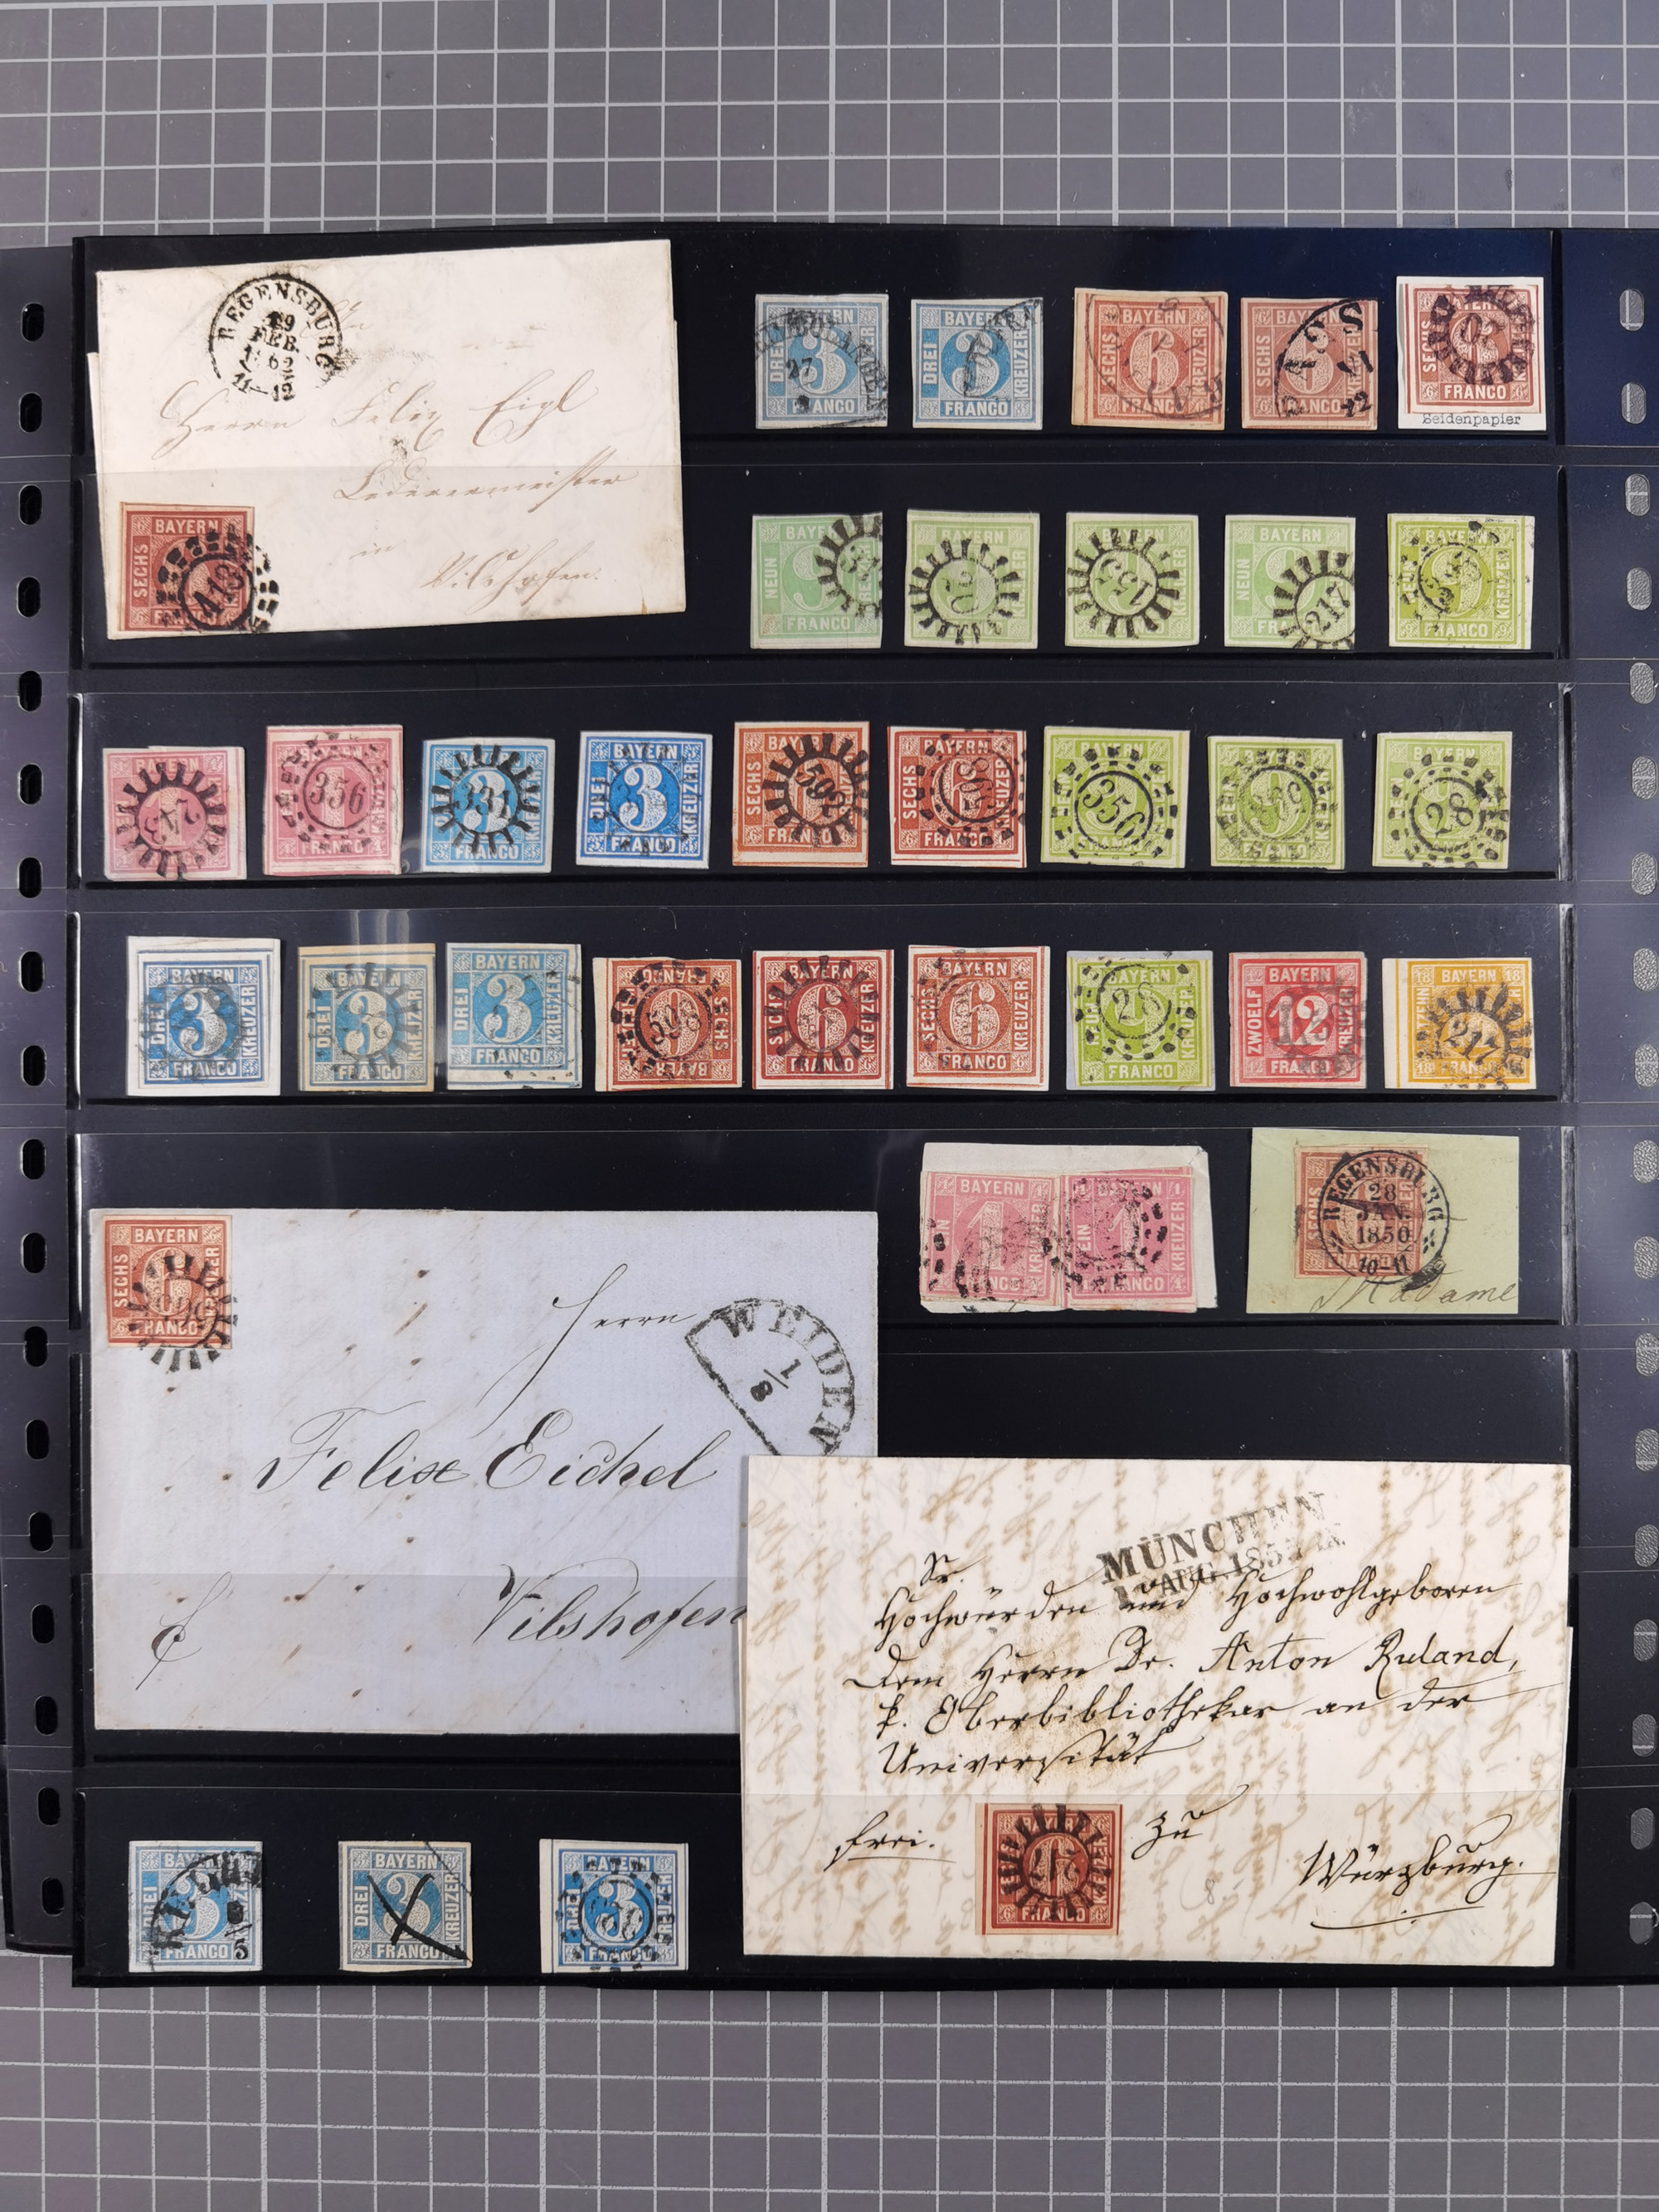 REGENSBURG
FEB.
62
11-12
Herrn Felix Eigl
Lederermeister
in
Vilshofen.
BAYERN
SECHS
413
DREI
KREUZER
3
FRANCO
27
BAYERN
DREI
KREUZER
3
FRANCO
BAYERN
SECHS
6
FRANCO
BAYERN
SECHS
6
FRANCO
12
SECHS
6
FRANCO
Seidenpapier
BAYERN
NEUN
FRANCO
BAYERN
FRANCO
BAYERN
155
FRANCO
BAYERN
NEUN
217
FRANCO
BAYERN
KREUZER
9
FRANCO
BAYERN
243
FRANCO
BAYERN
356
FRANCO
331
FRANCO
BAYERN
DREI
3
KREUZER
FRANCO
BAYERN
SECHS
592
FRANCO
BAYERN
SECHS
598
FRANCO
BAYERN
356
FRANCO
BAYERN
FRANCO
BAYERN
28
FRANCO
BAYERN
DREI
3
KREUZER
FRANCO
BAYERN
DREI
3
KREUZER
FRANCO
BAYERN
DREI
3
KREUZER
FRANCO
FRANCO
SECHS
BAYERN
BAYERN
SECHS
6
KREUZER
FRANCO
BAYERN
SECHS
6
KREUZER
FRANCO
BAYERN
28
KREUZER
FRANCO
BAYERN
ZWOELF
12
KREUZER
FRANCO
18 BAYERN 18
ACHTZEHN
217
18 FRANCO
BAYERN
1
KREUZER
FRANCO
BAYERN
EIN
1
KREUZER
FRANCO
SECHS
REGENSBURG
28
JAN.
1850
10-11
Madame
BAYERN
SECHS
6
KREUZER
FRANCO
WEIDEN
1/8
Herrn
Felix Eichel
Vilshofen
MÜNCHEN
AUG. 185
Sr.
Hochwürden und Hochwohlgeboren
dem Herrn Dr. Anton Ruland,
k. Oberbibliothekar an der
Universität
frei.
zu
Würzburg.
217
FRANCO
BAYERN
DREI
3
KREUZER
FRANCO
BAYERN
DREI
3
KREUZER
FRANCO
BAYERN
DREI
3
KREUZER
FRANCO